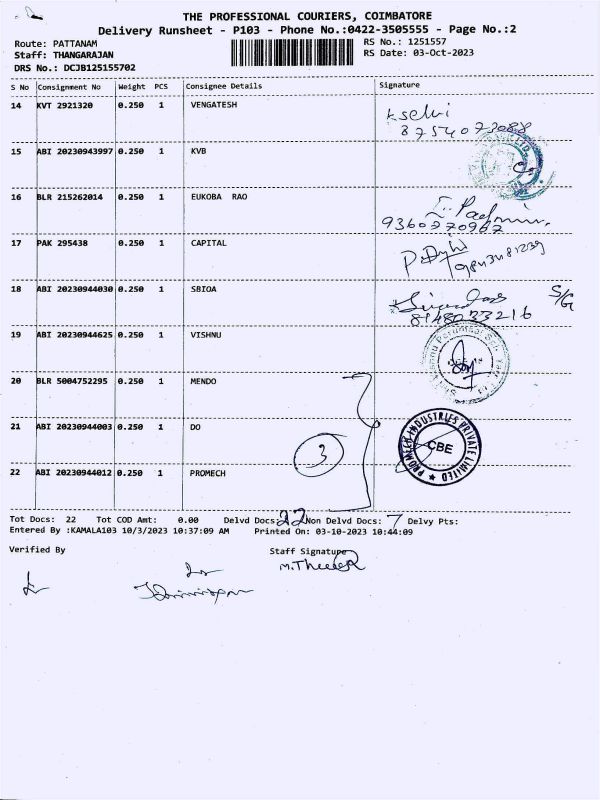 THE PROFESSIONAL COURIERS, COIMBATORE
Delivery Runsheet - P103 - Phone No.:0422-3505555 - Page No.:2
Route: PATTANAM
RS No.: 1251557
Staff: THANGARAJAN
RS Date: 03-Oct-2023
DRS No.: DCJB125155702
S No Consignment No Weight PCS Consignee Details Signature
14 KVT 2921320 0.250 1 VENGATESH
K selvi
8754073088
15 ABI 20230943997 0.250 1 KVB
16 BLR 215262014 0.250 1 EUKOBA RAO
9360270967
17 PAK 295438 0.250 1 CAPITAL
18 ABI 20230944030 0.250 1 SBIOA
S/G
8148033216
19 ABI 20230944625 0.250 1 VISHNU
20 BLR 5004752295 0.250 1 MENDO
21 ABI 20230944003 0.250 1 DO
3
PROMECH INDUSTRIES PRIVATE LIMITED
CBE
22 ABI 20230944012 0.250 1 PROMECH
Tot Docs: 22 Tot COD Amt: 0.00 Delvd Docs: 22 Non Delvd Docs: 7 Delvy Pts:
Entered By :KAMALA103 10/3/2023 10:37:09 AM Printed On: 03-10-2023 10:44:09
Verified By Staff Signature